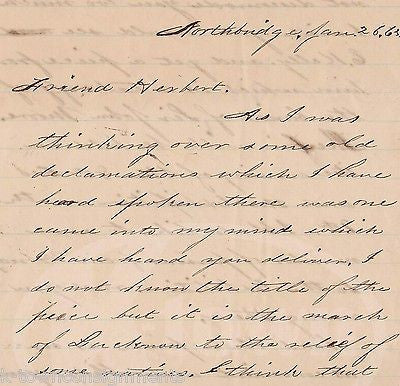 Northbridge, Jan 26, 63
Friend Herbert.
As I was
thinking over some old
declamations which I have
heard spoken there was one
came into my mind which
I have heard you deliver, I
do not know the title of the
peice but it is the march
of Lucknow to the releif of
some natives. I think that
k-townconsignments